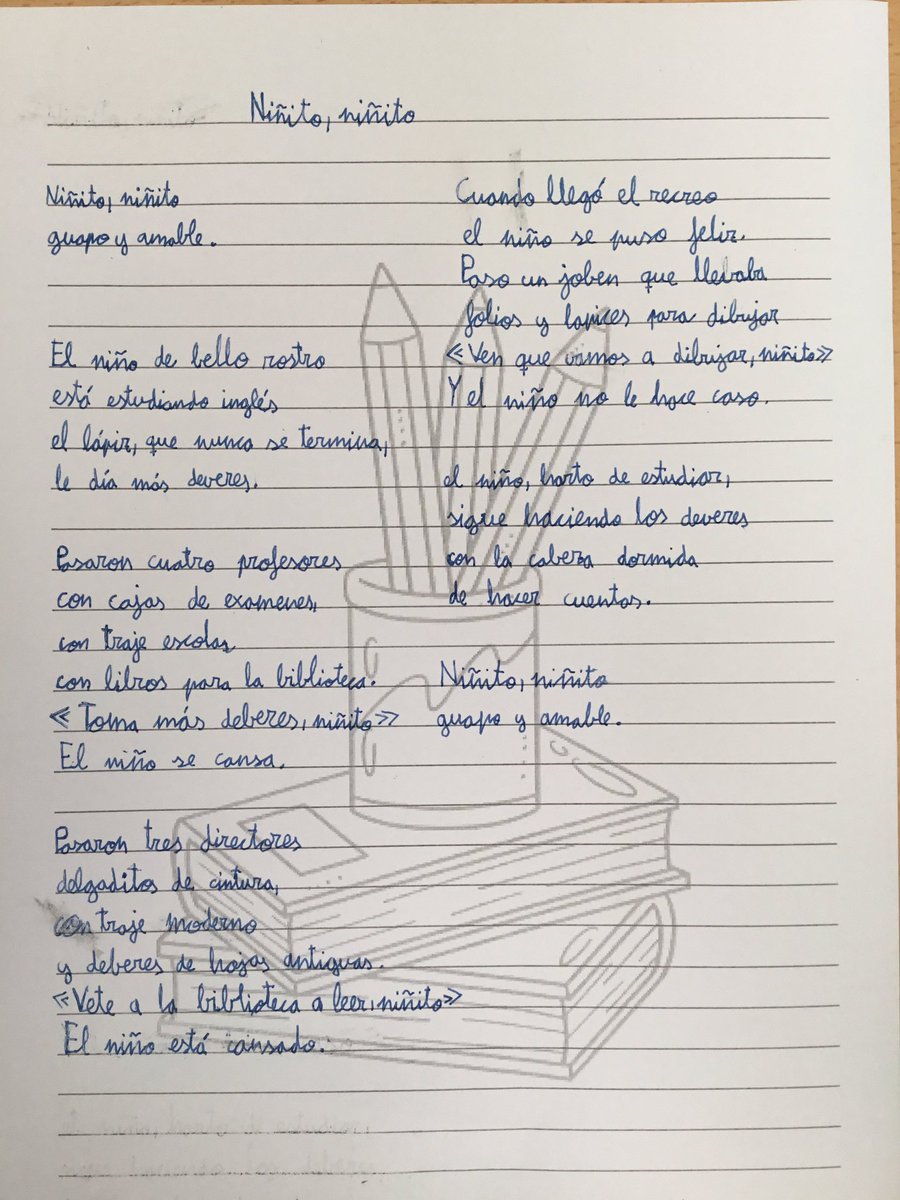 Niñito, niñito
Niñito, niñito
guapo y amable.
El niño de bello rostro
está estudiando inglés
el lápiz, que nunca se termina,
le día más deveres.
Pasaron cuatro profesores
con cajas de examenes,
con traje escolar
con libros para la biblioteca.
«Toma más deberes, niñito»
El niño se cansa.
Pasaron tres directores
delgaditos de cintura,
con traje moderno
y deberes de hojas antiguas.
«Vete a la biblioteca a leer, niñito»
El niño está cansado.
Cuando llegó el recreo
el niño se puso feliz.
Paso un joben que llevaba
folios y lapices para dibujar
«Ven que vamos a dibujar, niñito»
Y el niño no le hace caso.
el niño, harto de estudiar,
sigue haciendo los deveres
con la cabeza dormida
de hacer cuentas.
Niñito, niñito
guapo y amable.